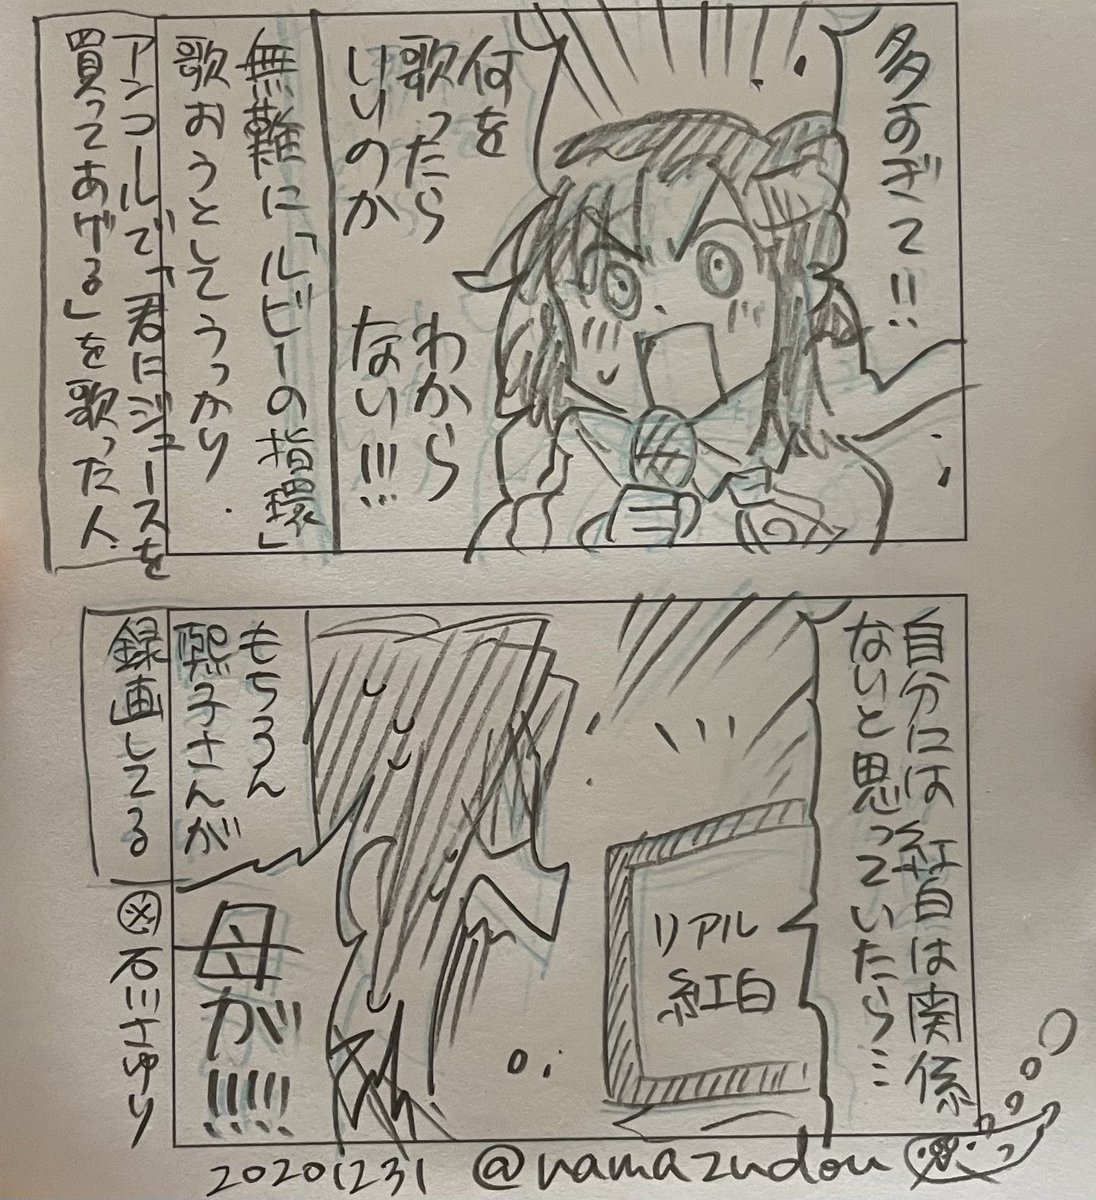 多すぎて!!
何を
歌ったら
いいのか
わから
ない!!!
無難に「ルビーの指環」
歌おうとしてうっかり
アンコールで「君にジュースを
買ってあげる」を歌った人
自分には紅白は関係
ないと思っていたら…
リアル
紅白
母が!!!!!
もちろん
熙子さんが
録画してる
※石川さゆり
20201231 @namazudou